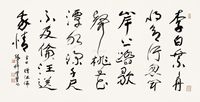 李白乘舟
将欲行忽闻
岸上踏歌
聲桃花
潭水深千尺
不及汪倫送
我情